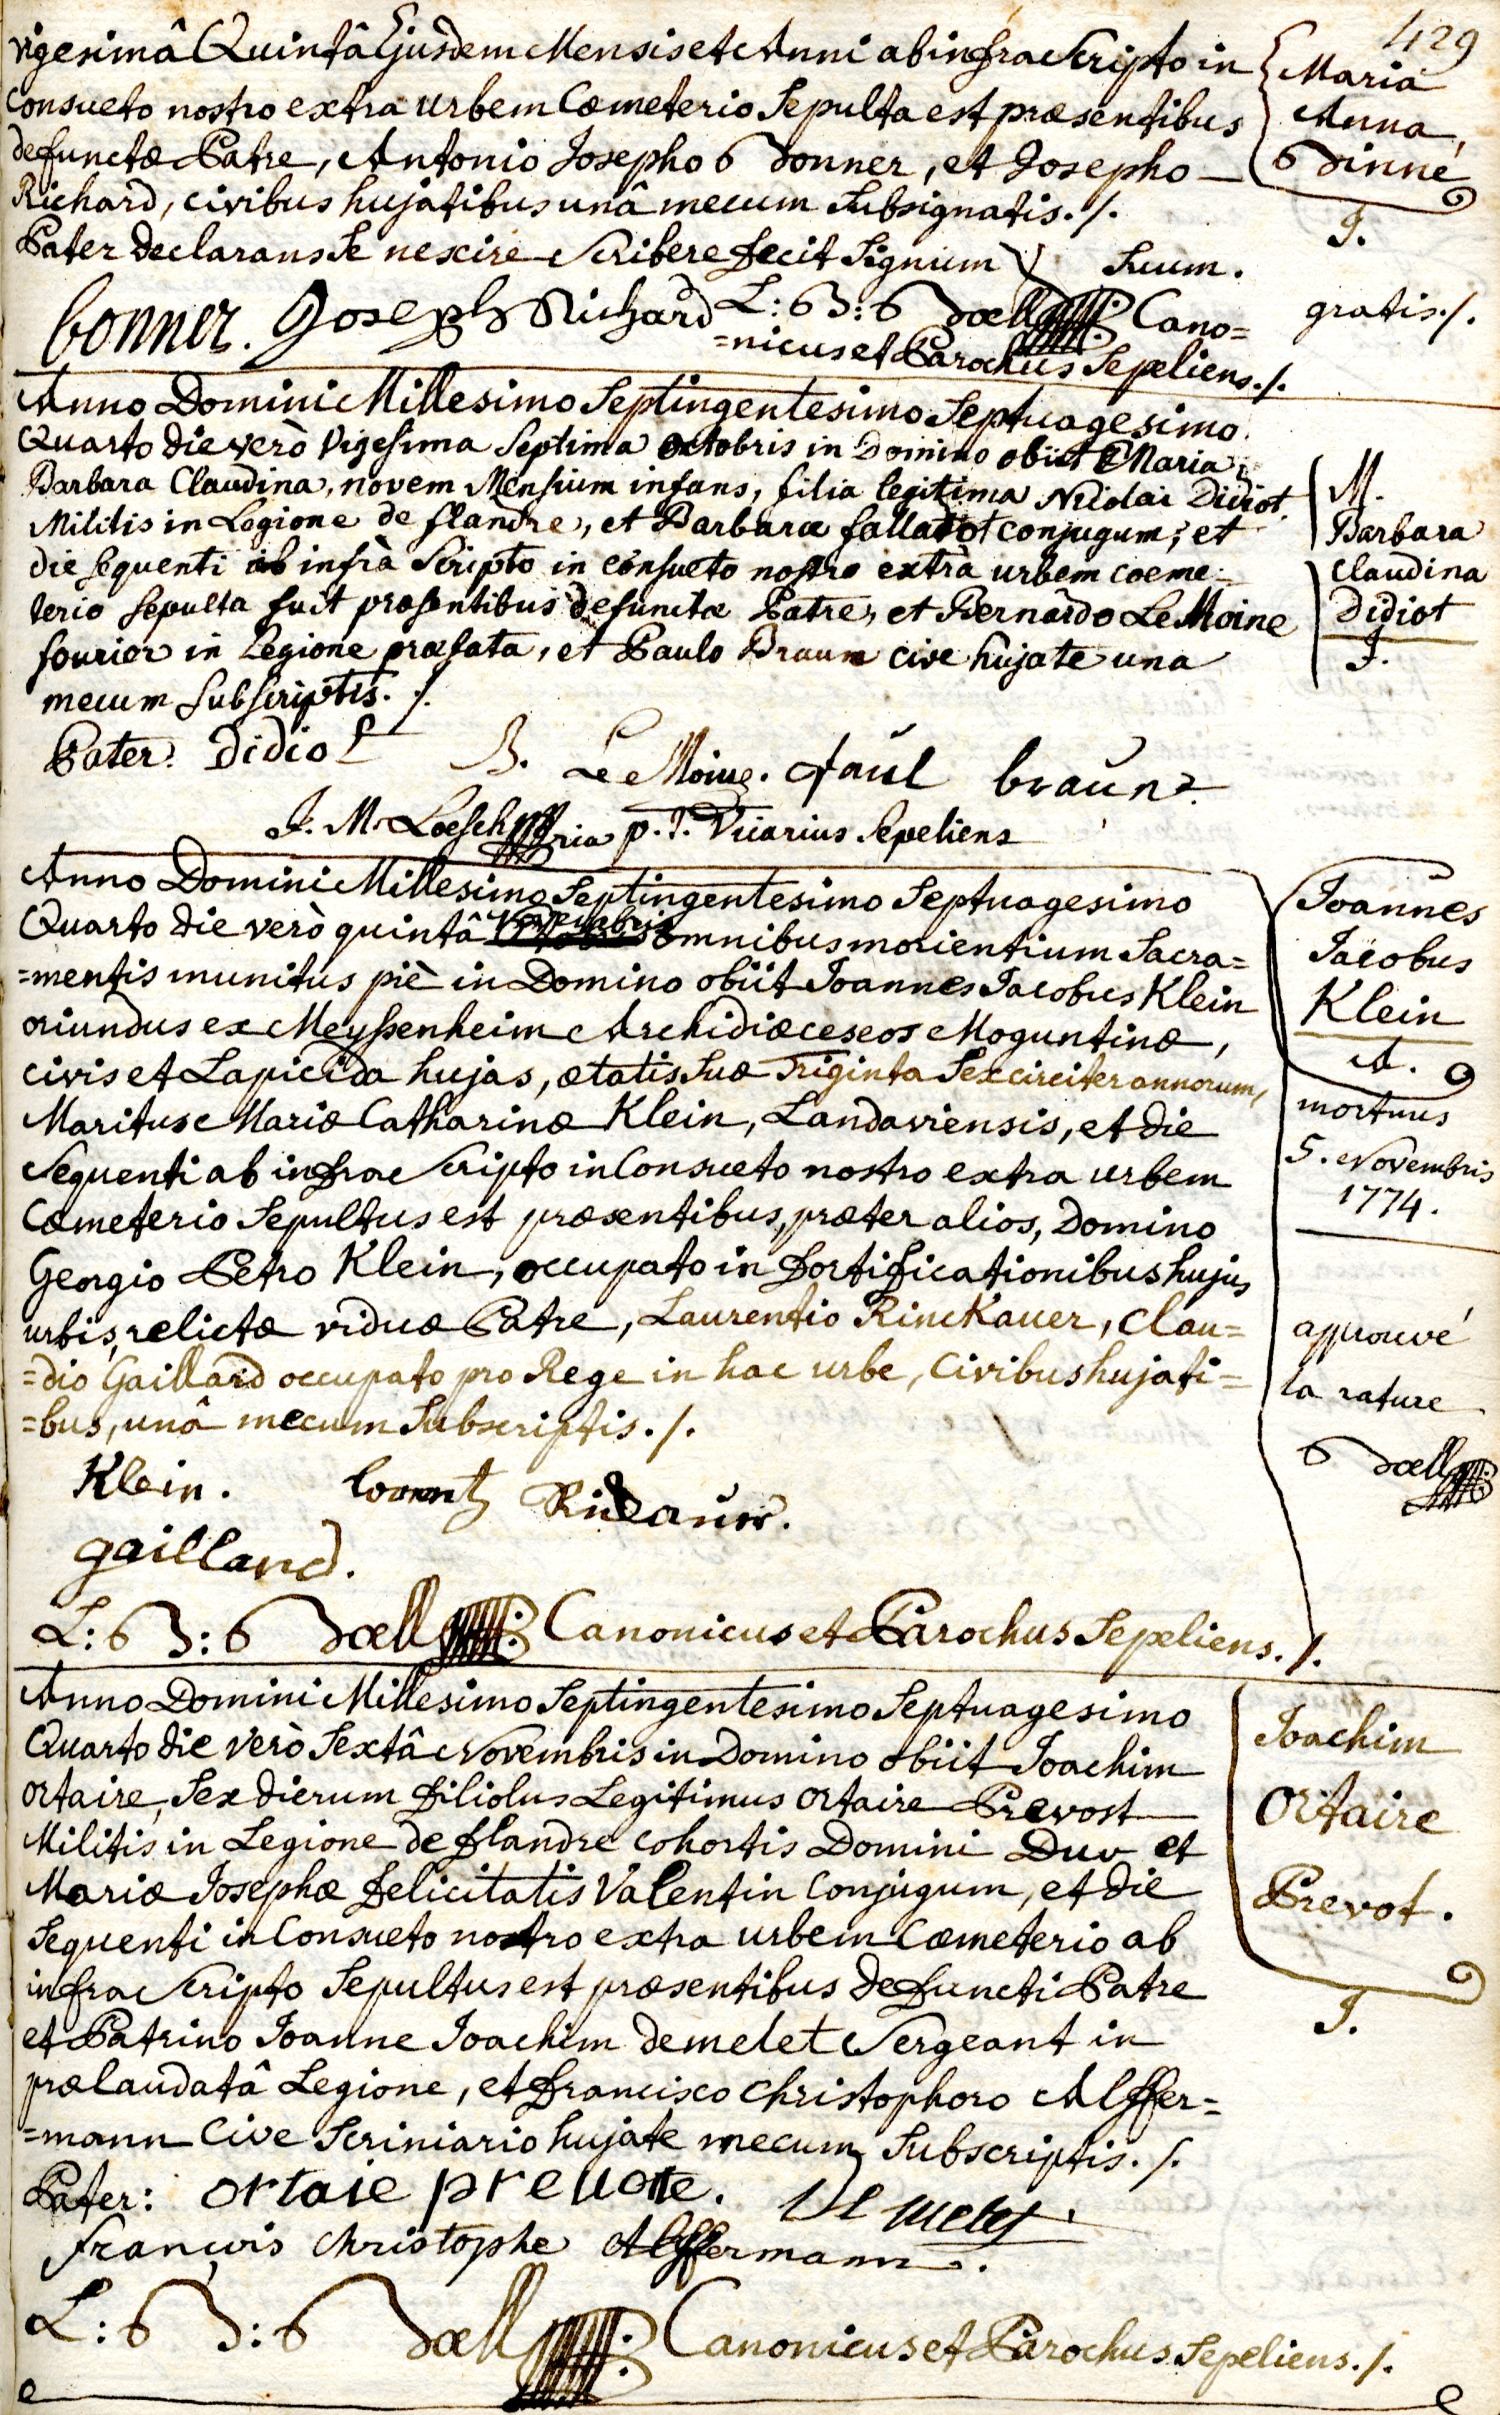 429
vigesimâ Quintâ Ejusdem Mensis et Anni ab infra Scripto in
consueto nostro extra urbem Cœmeterio Sepulta est præsentibus
defunctæ Patre, Antonio Josepho Bonner, et Josepho
Richard, civibus hujatibus unâ mecum Subsignatis./.
Pater declarans se nescire Scribere fecit Signum Suum.
Maria
Anna
J.
gratis./.
bonner. Joseph Richard L: B: Boell Cano=
=nicus et Parochus Sepeliens./.
Anno Domini Millesimo Septingentesimo Septuagesimo
Quarto die verò Vigesima Septima octobris in Domino obiit Maria
Barbara Claudina, novem Mensium infans, filia legitima Nicolai Didiot
Militis in Legione de flandre, et Barbaræ falladot conjugum, et
die sequenti ab infrà Scripto in consueto nostro extrà urbem coeme=
terio Sepulta fuit præsentibus defunctæ Patre, et Bernardo Le Moine
fourier in Legione præfata, et Paulo Braun cive hujate una
mecum subscriptis. /.
M.
Barbara
Claudina
Didiot
J.
Pater. Didiot B. Le Moine. Paul braun
J. M. Loesch p. t. Vicarius Sepeliens
Anno Domini Millesimo Septingentesimo Septuagesimo
Quarto die verò quintâ Novembris omnibus morientium Sacra=
=mentis munitus piè in Domino obiit Joannes Jacobus Klein
oriundus ex Meyssenheim Archidiœceseos Moguntinæ,
civis et Lapicida hujas, ætatis Suæ Triginta Sex circiter annorum,
Maritus Mariæ Catharinæ Klein, Landaviensis, et die
Sequenti ab infra Scripto in Consueto nostro extra urbem
Cœmeterio Sepultus est præsentibus, præter alios, Domino
Georgio Petro Klein, occupato in fortificationibus hujus
urbis, relictæ viduæ Patre, Laurentio RincKauer, Clau=
=dio Gaillard occupato pro Rege in hac urbe, Civibus hujati=
=bus, unâ mecum Subscriptis./.
Joannes
Jacobus
Klein
A.
mortuus
5. Novembris
1774.
approuvé
la rature
Boell
Klein. lorentz
gaillard.
L: B: Boell Canonicus et Parochus Sepeliens./.
Anno Domini Millesimo Septingentesimo Septuagesimo
Quarto die verò Sextâ Novembris in Domino obiit Joachim
Ortaire, Sex dierum filiolus Legitimus Ortaire Prevost
Militis in Legione de flandre cohortis Domini Duv et
Mariæ Josephæ felicitatis Valentin Conjugum, et die
Sequenti in Consueto nostro extra urbem Cœmeterio ab
infra Scripto Sepultus est præsentibus defuncti Patre
et Patrino Joanne Joachim demelet Sergeant in
prælaudatâ Legione, et francisco Christophoro Alffer=
=mann Cive Scriniario hujate mecum Subscriptis./.
Joachim
Ortaire
Prevot.
J.
Pater: ortaie prevote. De melet.
françois Christophe Alffermann.
L: B: Boell Canonicus et Parochus Sepeliens./.